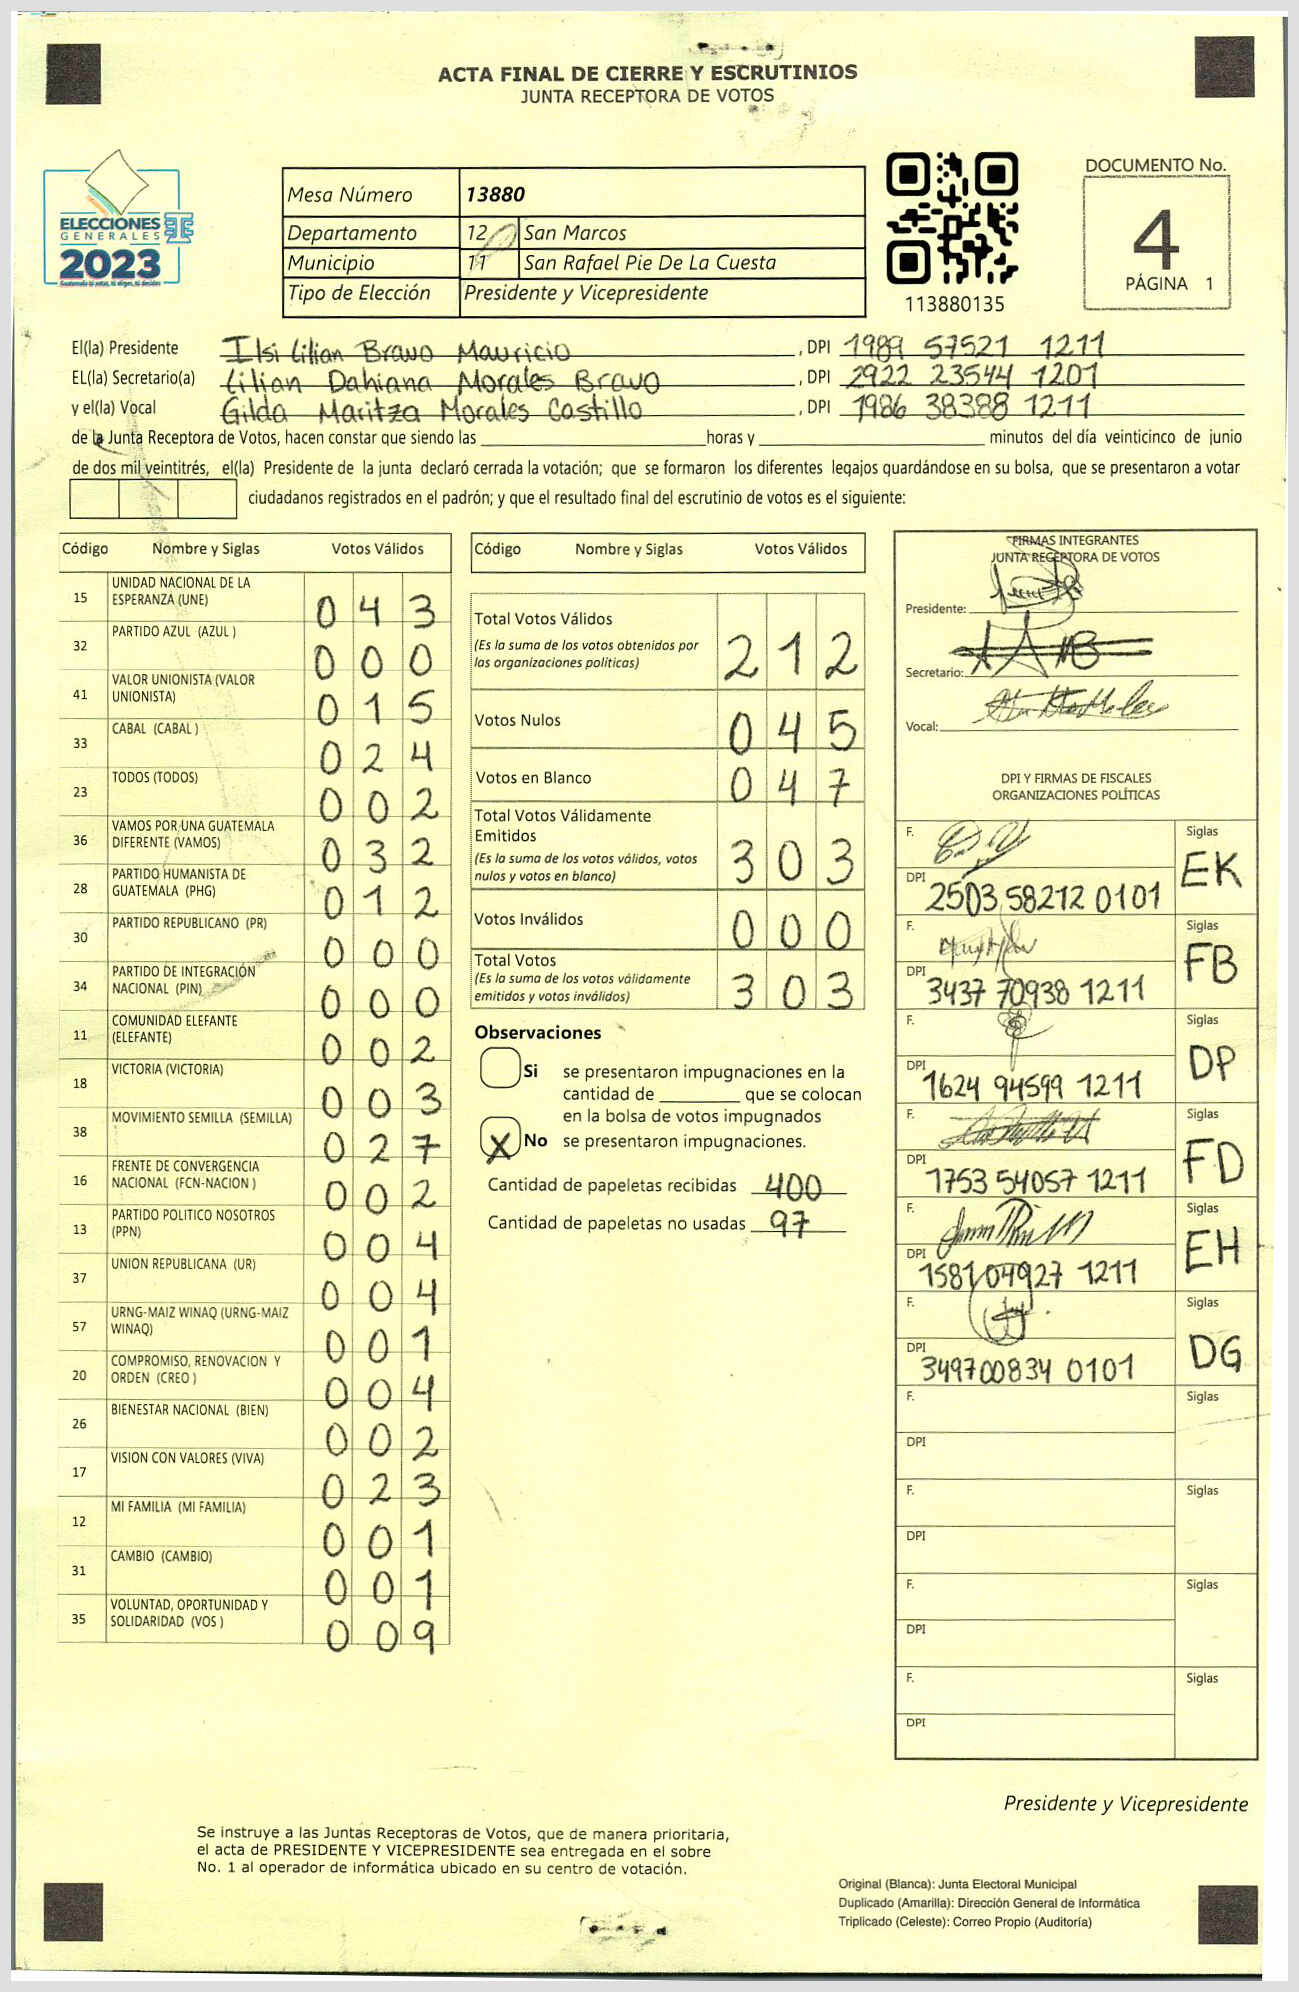 ACTA FINAL DE CIERRE Y ESCRUTINIOS
JUNTA RECEPTORA DE VOTOS
ELECCIONES
GENERALES
2023
Mesa Número 13880
Departamento 12 San Marcos
Municipio 11 San Rafael Pie De La Cuesta
Tipo de Elección Presidente y Vicepresidente
113880135
DOCUMENTO No.
4
PÁGINA 1
El(la) Presidente Ilsi Lilian Bravo Mauricio , DPI 1989 57521 1211
EL(la) Secretario(a) Lilian Dahiana Morales Bravo , DPI 2922 23544 1201
y el(la) Vocal Gilda Maritza Morales Castillo , DPI 1986 38388 1211
de la Junta Receptora de Votos, hacen constar que siendo las horas y minutos del día veinticinco de junio
de dos mil veintitrés, el(la) Presidente de la junta declaró cerrada la votación; que se formaron los diferentes legajos guardándose en su bolsa, que se presentaron a votar
ciudadanos registrados en el padrón; y que el resultado final del escrutinio de votos es el siguiente:
Código Nombre y Siglas Votos Válidos
15 UNIDAD NACIONAL DE LA ESPERANZA (UNE) 043
32 PARTIDO AZUL (AZUL ) 000
41 VALOR UNIONISTA (VALOR UNIONISTA) 015
33 CABAL (CABAL ) 024
23 TODOS (TODOS) 002
36 VAMOS POR UNA GUATEMALA DIFERENTE (VAMOS) 032
28 PARTIDO HUMANISTA DE GUATEMALA (PHG) 012
30 PARTIDO REPUBLICANO (PR) 000
34 PARTIDO DE INTEGRACIÓN NACIONAL (PIN) 000
11 COMUNIDAD ELEFANTE (ELEFANTE) 002
18 VICTORIA (VICTORIA) 003
38 MOVIMIENTO SEMILLA (SEMILLA) 027
16 FRENTE DE CONVERGENCIA NACIONAL (FCN-NACION ) 002
13 PARTIDO POLITICO NOSOTROS (PPN) 004
37 UNION REPUBLICANA (UR) 004
57 URNG-MAIZ WINAQ (URNG-MAIZ WINAQ) 001
20 COMPROMISO, RENOVACION Y ORDEN (CREO ) 004
26 BIENESTAR NACIONAL (BIEN) 002
17 VISION CON VALORES (VIVA) 023
12 MI FAMILIA (MI FAMILIA) 001
31 CAMBIO (CAMBIO) 001
35 VOLUNTAD, OPORTUNIDAD Y SOLIDARIDAD (VOS ) 009
Código Nombre y Siglas Votos Válidos
Total Votos Válidos 212
(Es la suma de los votos obtenidos por
las organizaciones políticas)
Votos Nulos 045
Votos en Blanco 047
Total Votos Válidamente
Emitidos 303
(Es la suma de los votos válidos, votos
nulos y votos en blanco)
Votos Inválidos 000
Total Votos 303
(Es la suma de los votos válidamente
emitidos y votos inválidos)
Observaciones
Si se presentaron impugnaciones en la
cantidad de que se colocan
en la bolsa de votos impugnados
X No se presentaron impugnaciones.
Cantidad de papeletas recibidas 400
Cantidad de papeletas no usadas 97
FIRMAS INTEGRANTES
JUNTA RECEPTORA DE VOTOS
Presidente:
Secretario:
Vocal:
DPI Y FIRMAS DE FISCALES
ORGANIZACIONES POLÍTICAS
F. Siglas EK
DPI 2503 58212 0101
F. Siglas FB
DPI 3437 70938 1211
F. Siglas DP
DPI 1624 94599 1211
F. Siglas FD
DPI 1753 54057 1211
F. Siglas EH
DPI 1581 04927 1211
F. Siglas DG
DPI 349700834 0101
F. Siglas
DPI
F. Siglas
DPI
F. Siglas
DPI
F. Siglas
DPI
Presidente y Vicepresidente
Se instruye a las Juntas Receptoras de Votos, que de manera prioritaria,
el acta de PRESIDENTE Y VICEPRESIDENTE sea entregada en el sobre
No. 1 al operador de informática ubicado en su centro de votación.
Original (Blanca): Junta Electoral Municipal
Duplicado (Amarilla): Dirección General de Informática
Triplicado (Celeste): Correo Propio (Auditoría)